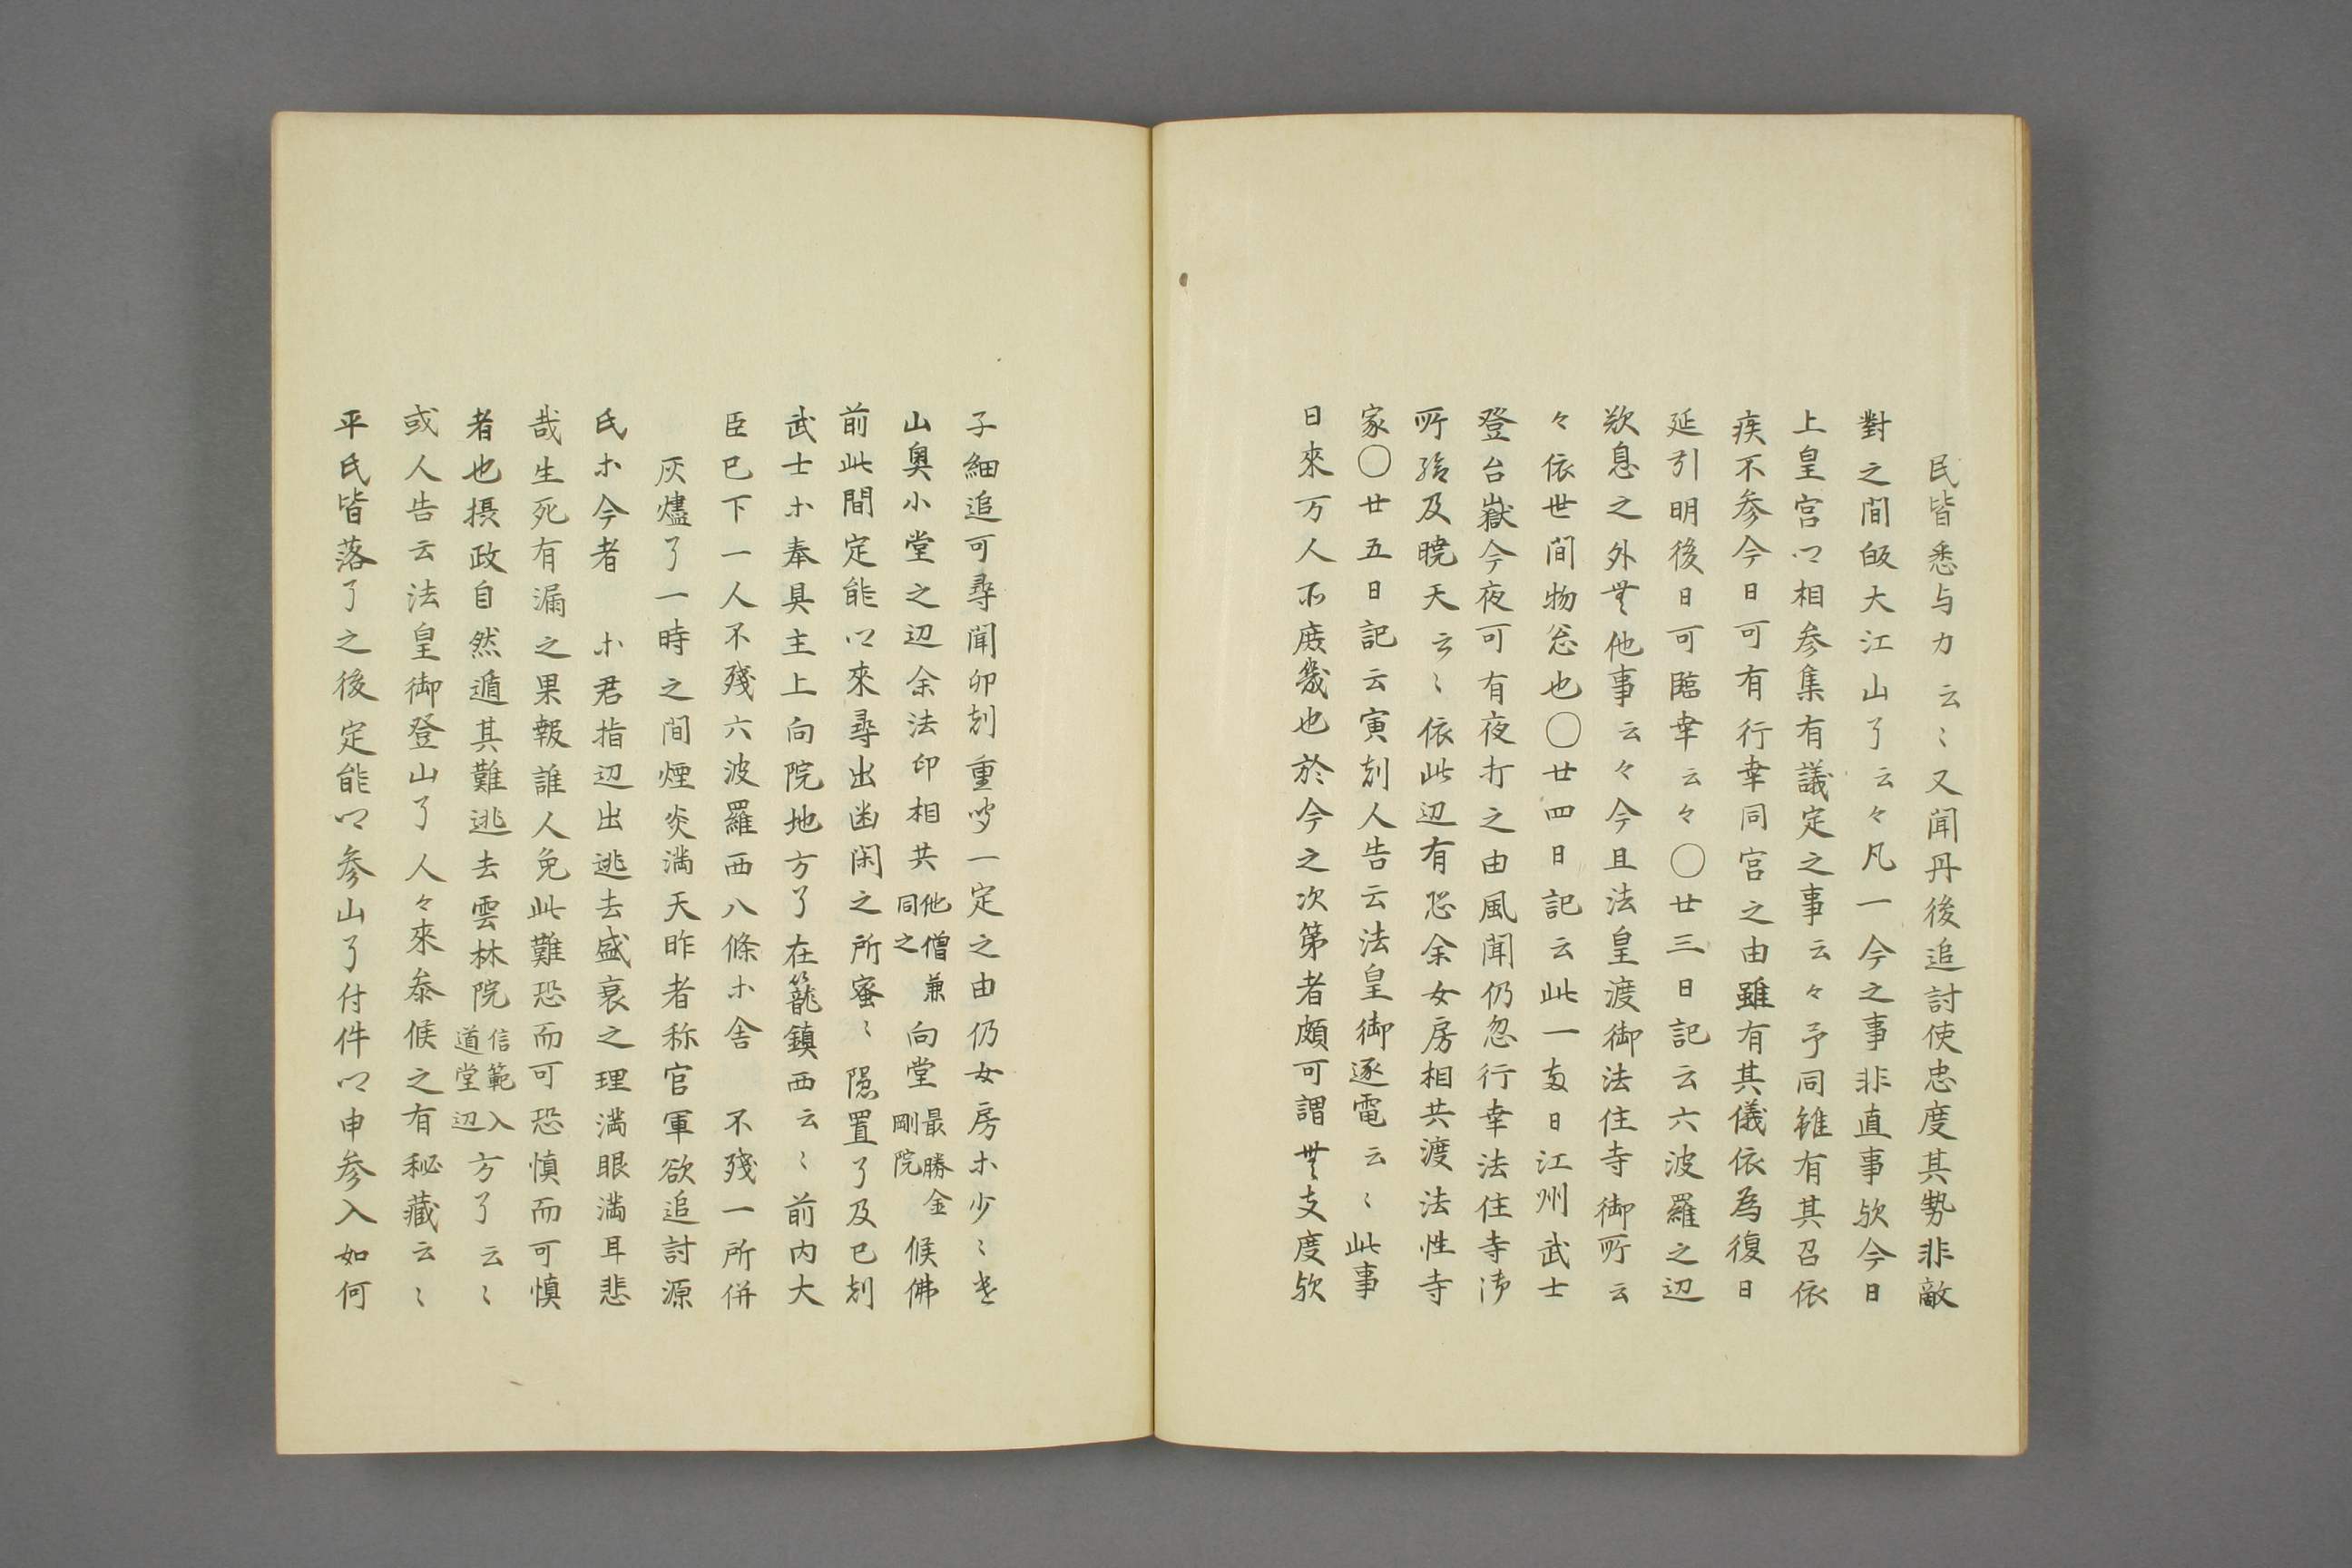 民皆悉与力云〻又聞丹後追討使忠度其勢非敵
對之間皈大江山了云々凡一今之事非直事欤今日
上皇宮ニ相参集有議定之事云々予同雖有其召依
疾不参今日可有行幸同宮之由雖有其儀依為復日
延引明後日可臨幸云々〇廿三日記云六波羅之辺
歎息之外無他事云々今且法皇渡御法住寺御所云
々依世間物忩也〇廿四日記云此一両日江州武士
登台嶽今夜可有夜打之由風聞仍忽行幸法住寺御
所給及暁天云〻依此辺有恐余女房相共渡法性寺
家〇廿五日記云寅刻人告云法皇御逐電云〻此事
日來万人所庶幾也於今之次第者頗可謂無支度欤
子細追可尋聞卯刻重聞一定之由仍女房ホ少〻遣
山奥小堂之辺余法印相共他僧兼同之向堂最勝金剛院候佛
前此間定能卿來尋出凾閑之所蜜〻隠置了及巳刻
武士ホ奉具主上向院地方了在籠鎮西云〻前内大
臣已下一人不残六波羅西八條ホ舎 不残一所併
灰燼了一時之間煙炎満天昨者称官軍欲追討源
氏ホ今者 ホ君指辺出逃去盛衰之理満眼満耳悲
哉生死有漏之果報誰人免此難恐而可恐慎而可慎
者也摂政自然遁其難逃去雲林院信範入道堂辺方了云〻
或人告云法皇御登山了人々來叅候之有秘蔵云〻
平氏皆落了之後定能卿参山了付件卿申参入如何